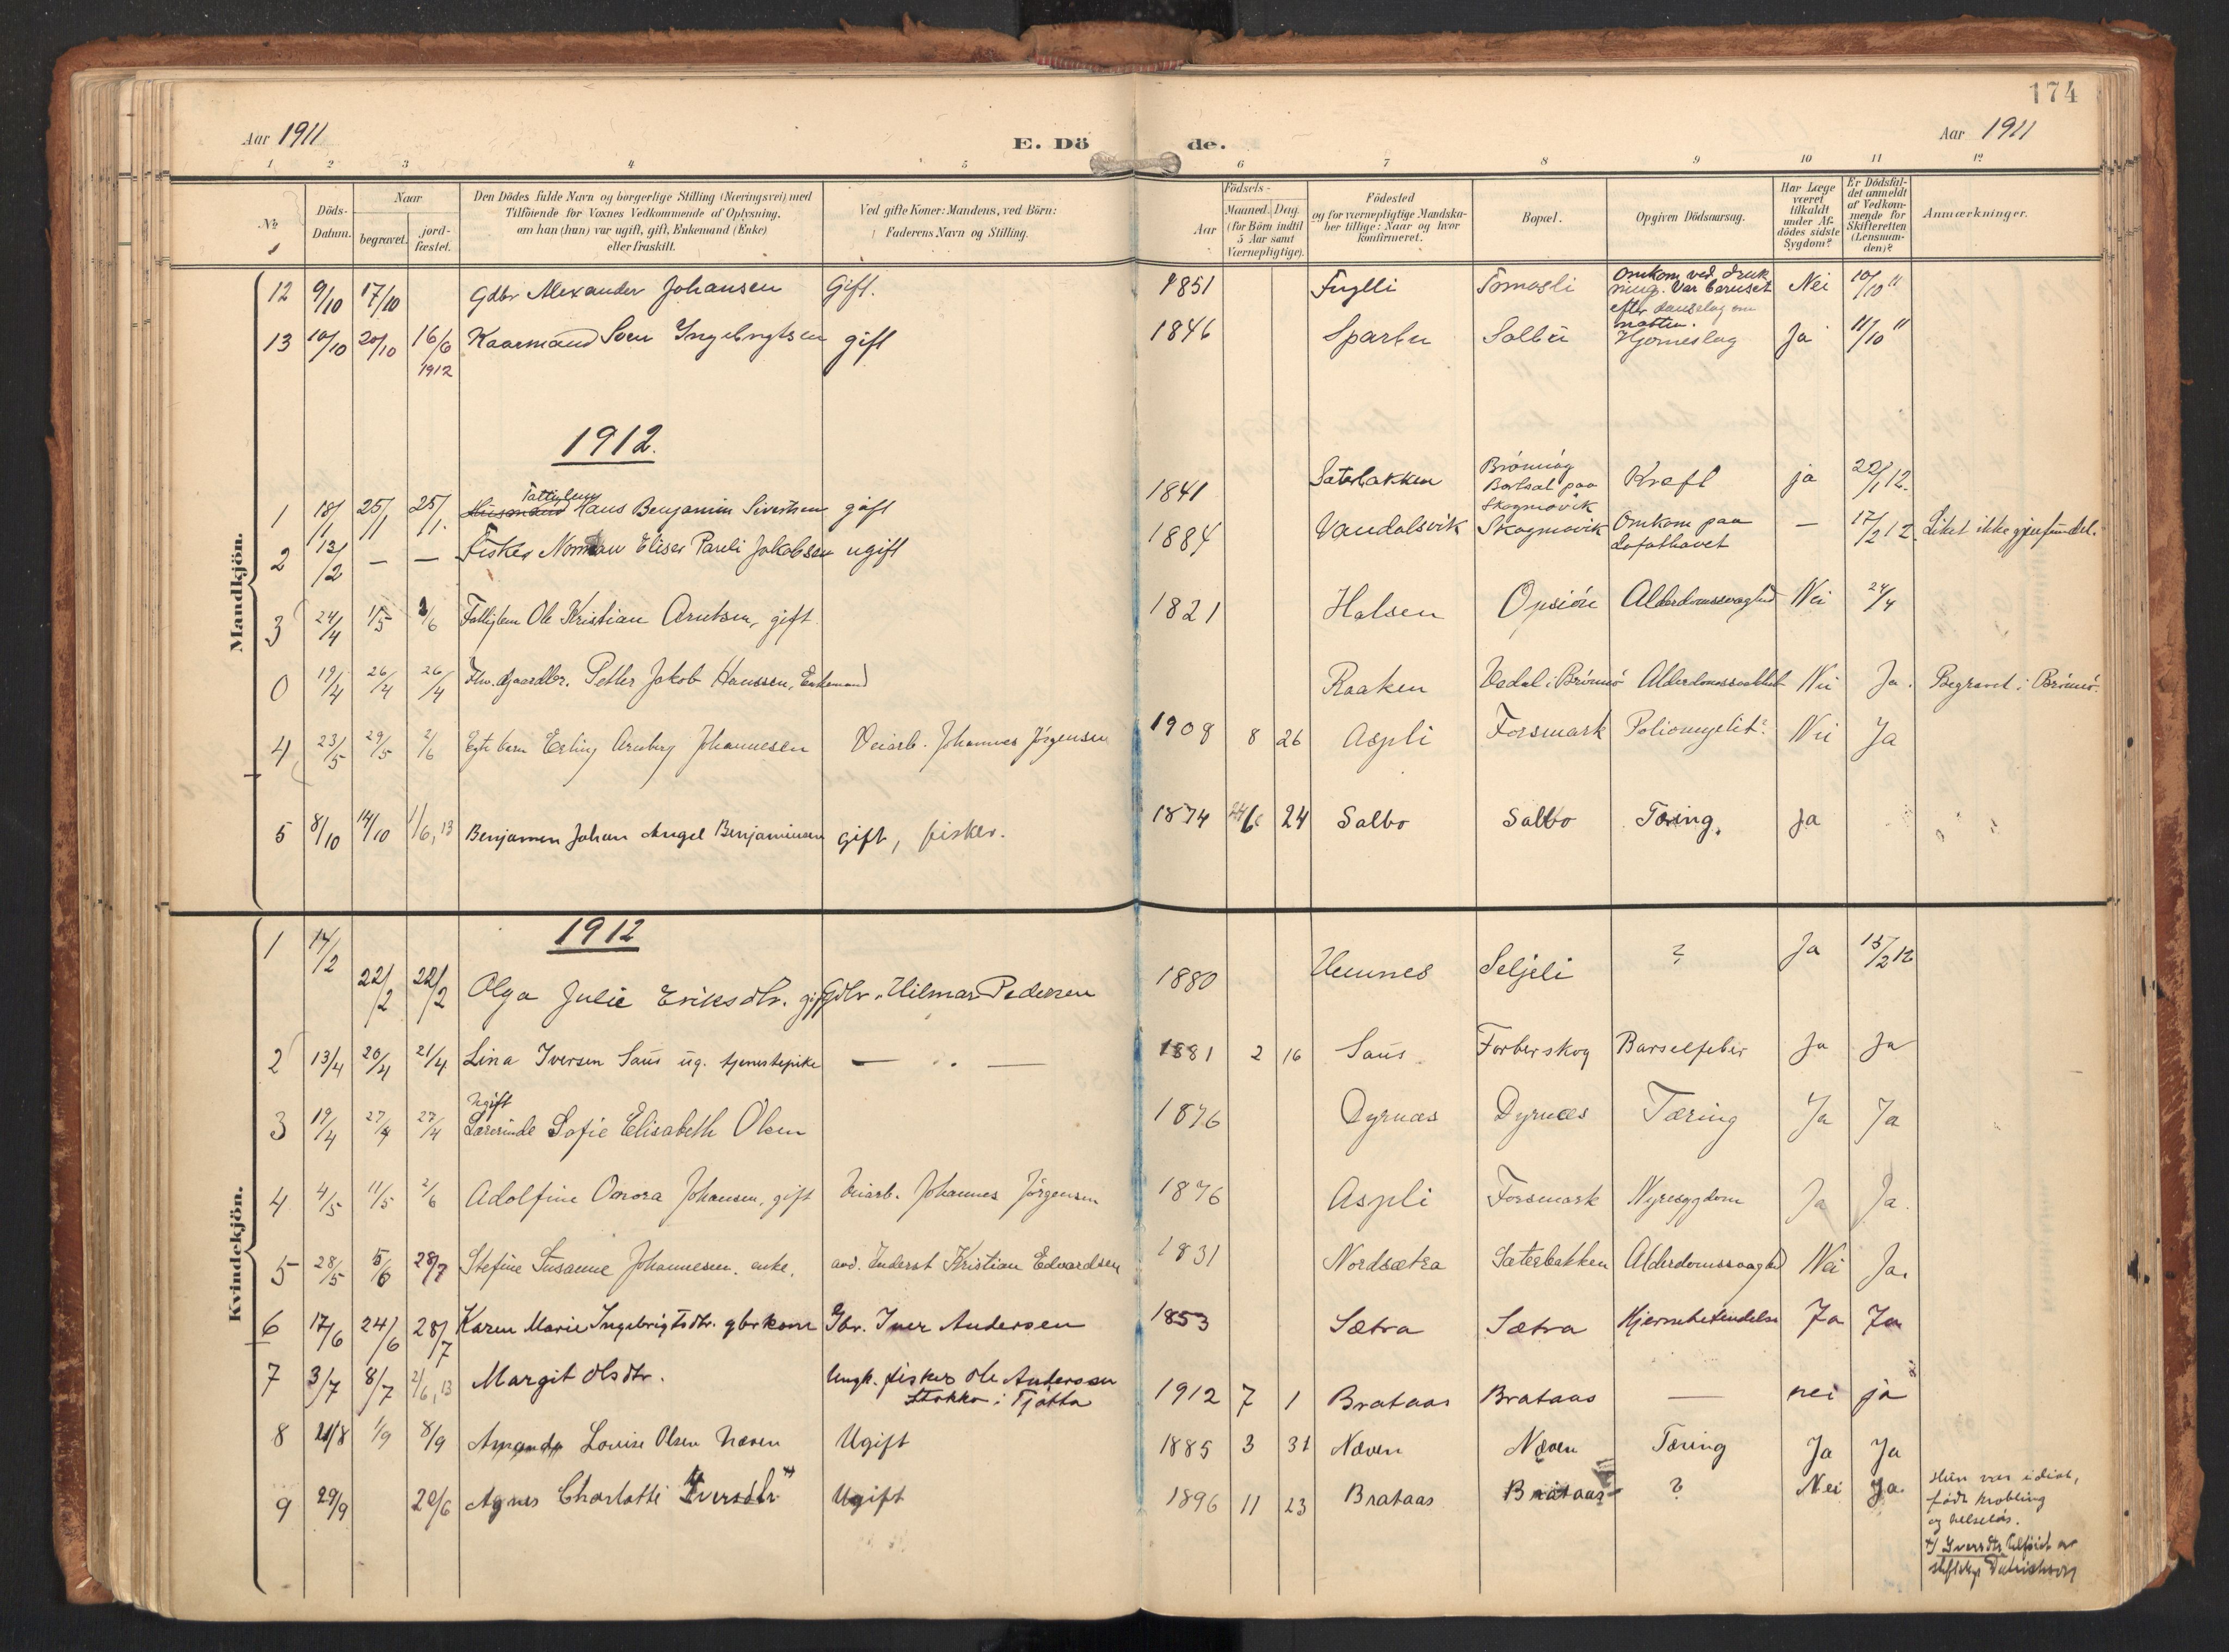 174
Aar 1911
E. Dö
de.
Aar 1911
1 2 3 4 5 6 7 8 9 10 11 12
No
Döds-Datum.
Naar
begravet.
jord-fæstet.
Den Dödes fulde Navn og borgerlige Stilling (Næringsvei) med
Tilföiende for Voxnes Vedkommende af Oplysning,
om han (hun) var ugift, gift, Enkemand (Enke)
eller fraskilt.
Ved gifte Koner: Mandens, ved Börn:
Faderens Navn og Stilling.
Födsels-
Aar
Maaned. Dag.
(for Börn indtil
5 Aar samt
Værnepligtige).
Födested
og for værnepligtige Mandska-
ber tillige: Naar og hvor
konfirmeret.
Bopæl.
Opgiven Dödsaarsag.
Har Læge
været
tilkaldt
under Af-
dödes sidste
Sygdom?
Er Dödsfal-
det anmeldt
af Vedkom-
mende for
Skifteretten
(Lensman-
den)?
Anmærkninger.
Mandkjön.
12 9/10 17/10 Gdbr Alexander Johansen Gift. 1851 Fuglli Tomasli Omkom ved druk
ning. Var beruset
efter danselag om
natten. Nei 10/10 11
13 10/10 20/10 16/6 1912 Kaarmand Sven Ingebrigtsen gift 1846 Sparbu Salbu Hjerneslag Ja 11/10 11
1912.
1 18/1 25/1 25/1. Husmand Fattiglem Hans Benjamin Sivertsen gift 1841 Sæterbakken Brönnög
Bortsat paa
Skogmovik Kræft ja 22/1 12.
2 12/2 — — Fisker Norman Eliser Pareli Jakobsen ugift 1884 Vandalsvik Skogmovik Omkom paa
Lofothavet — 17/2 12. Liket ikke gjenfundet.
3 24/4 1/5 2/6 Fattiglem Ole Kristian Arntsen, gift. 1821 Halsen Opsiöen Alderdomssvaghed Nei 24/4
0 19/4 26/4 26/4 Fhv. Gaardbr. Petter Jakob Hanssen, Enkemand Raaken Vedal i Brönnö Alderdomssvakhet Nei Ja. Begravet i Brönnö.
4 23/5 29/5 2/6 Egte barn Erling Arnberg Johannesen Veiarb. Johannes Jörgensen 1908 8 26 Aspli Forsmark Poliomyelit? Nei Ja
5 8/10 14/10 1/6, 13 Benjamen Johan Angel Benjaminsen gift, fisker. 1874 6 24 Salbo Salbo Tæring. Ja
Kvindekjön.
1912
1 14/2 22/2 22/2 Olga Julie Eriksdtr. gift Gdbr. Hilmar Pedersen 1880 Hemnes Seljeli ? Ja 15/2 12
2 13/4 20/4 21/4 Lina Iversen Saus ug. tjenestepike — " — 1881 2 16 Saus Forberskog Barselfeber Ja Ja
3 19/4 27/4 27/4 Ugift
Lærerinde Sofie Elisabeth Olsen 1876 Dyrnæs Dyrnæs Tæring Ja Ja
4 4/5 11/5 2/6 Adolfine Onora Johansen, gift Veiarb. Johannes Jörgensen 1876 Aspli Forsmark Nyresygdom Ja Ja.
5 28/5 5/6 28/7 Stefine Susanne Johannesen. enke. avd. Inderst Kristian Edvardsen 1831 Nordsætra Sæterbakken Alderdomssvaghed Nei Ja.
6 17/6 24/6 28/7 Karen Marie Ingebrigtsdtr. gbrkone Gbr. Iver Andersen 1853 Sætra Sætra Hjernebetendelse Ja Ja
7 3/7 8/7 2/6, 13 Margit Olsdtr. Ungk. fisker Ole Andersen
Stokka i Tjötta 1912 7 1 Brataas Brataas — nei ja
8 21/8 1/9 8/9 Amanda Lovise Olsen Næven Ugift 1885 3 31 Næven Næven Tæring Ja Ja
9 29/9 20/6 Agnes Charlotte Iversdtr Ugift 1896 11 23 Brataas Brataas ? Nei Ja. Hun var idiot,
födt krobling
og helselös.
Iversdtr tilföiet av